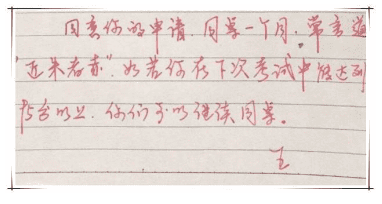 同意你的申请，同桌一个月，常言道
“近朱者赤”，如若你在下次考试中能达到
75分以上，你们可以继续同桌。
王